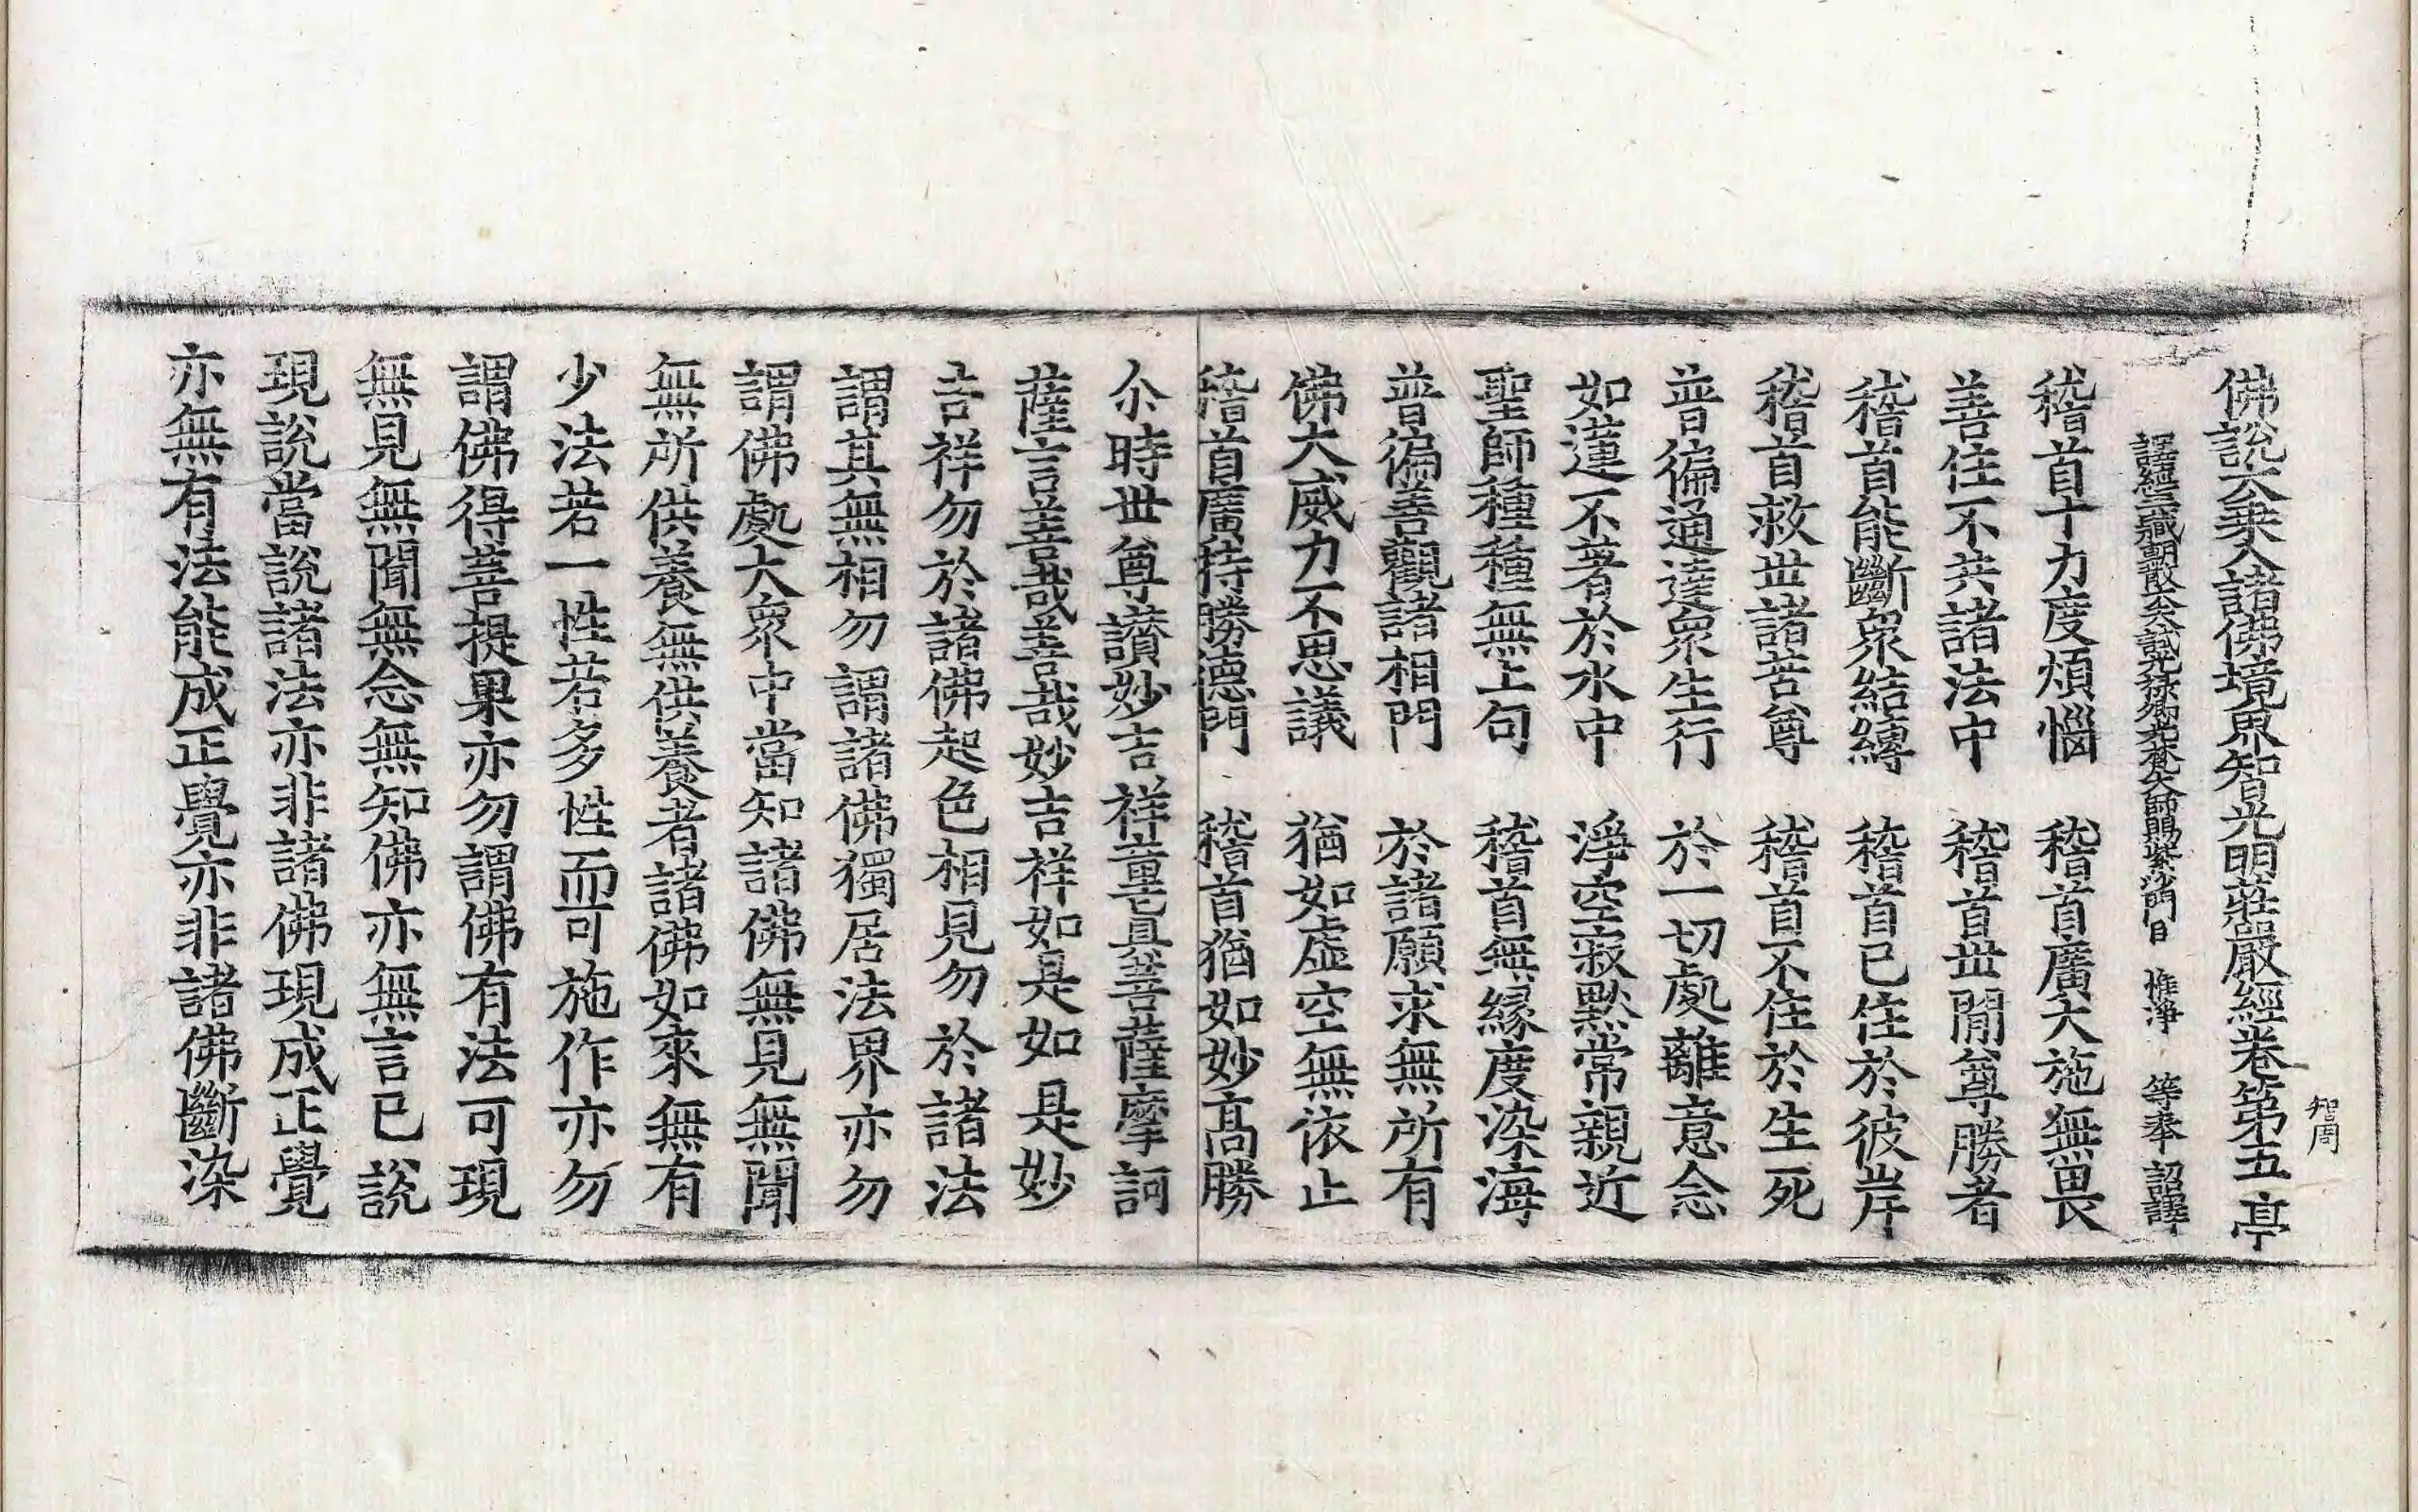 佛說大乘入諸佛境界智光明莊嚴經卷第五 亭
智周
譯經三藏朝散大夫試光祿卿光梵大師賜紫沙門臣 惟淨 等奉 詔譯
稽首十力度煩惱 稽首廣大施無畏
善住不共諸法中 稽首世間尊勝者
稽首能斷衆結縛 稽首已住於彼岸
稽首救世諸苦尊 稽首不住於生死
普徧通達衆生行 於一切處離意念
如蓮不著於水中 淨空寂默常親近
聖師種種無上句 稽首無緣度染海
普徧善觀諸相門 於諸願求無所有
佛大威力不思議 猶如虛空無依止
稽首廣持勝德門 稽首猶如妙高勝
尒時世尊讃妙吉祥童眞菩薩摩訶
薩言善哉善哉妙吉祥如是如是妙
吉祥勿於諸佛起色相見勿於諸法
謂其無相勿謂諸佛獨居法界亦勿
謂佛處大衆中當知諸佛無見無聞
無所供養無供養者諸佛如來無有
少法若一性若多性而可施作亦勿
謂佛得菩提果亦勿謂佛有法可現
無見無聞無念無知佛亦無言已說
現說當說諸法亦非諸佛現成正覺
亦無有法能成正覺亦非諸佛斷染